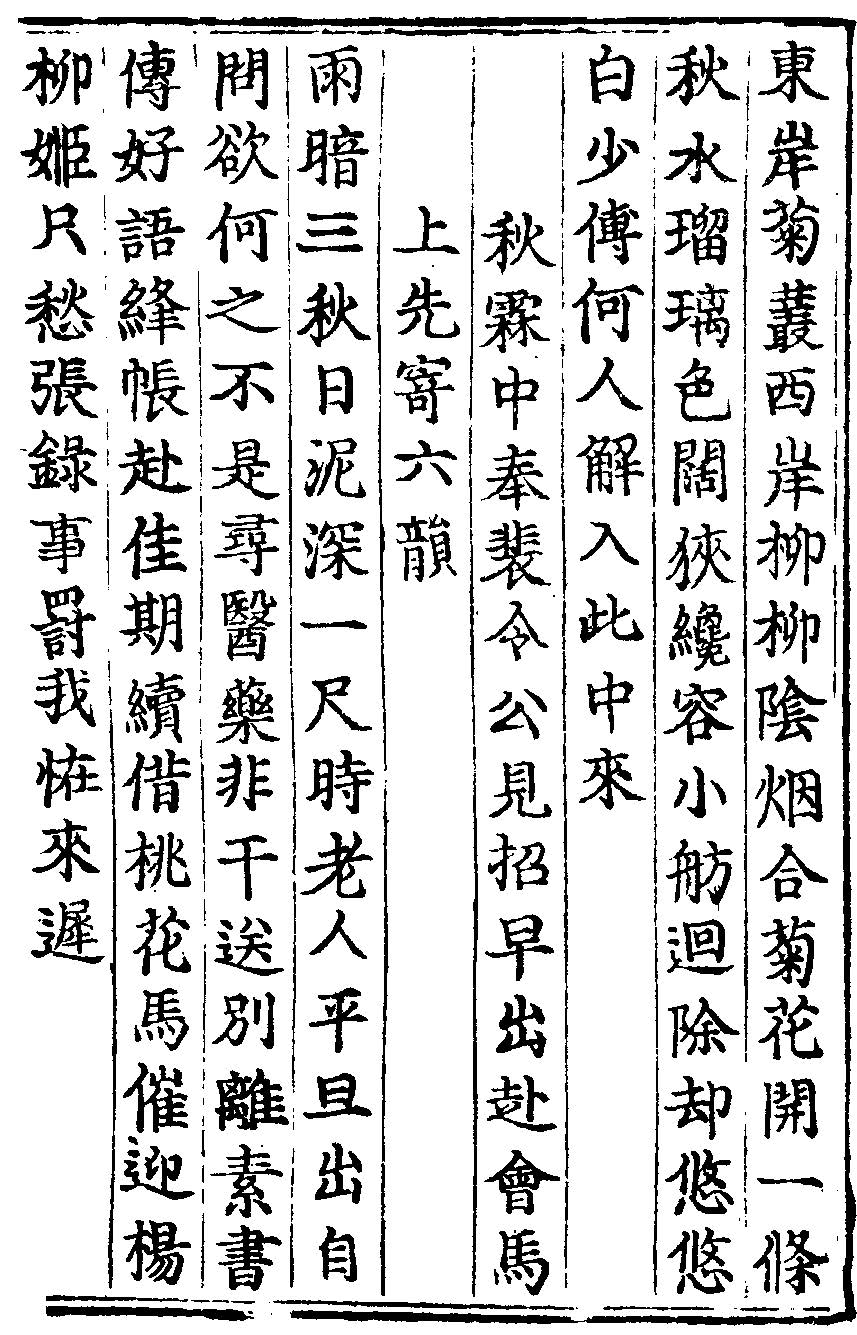 東岸菊叢西岸柳柳陰烟合菊花開一條
秋水瑠璃色闊狹纔容小舫迴除却悠悠
白少傅何人解入此中來
秋霖中奉裴令公見招早出赴會馬
上先寄六韻
雨暗三秋日泥深一尺時老人平旦出自
問欲何之不是尋醫藥非干送別離素書
傳好語絳帳赴佳期續借桃花馬催迎楊
柳姬只愁張錄事罰我恠來遲